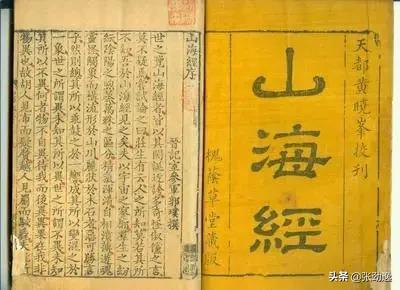 天都黃曉峯校刊
山海經
槐蔭草堂藏版
山海經序
晉記室參軍郭璞撰
世之覽山海經者皆以其閎誕迂誇多奇怪俶儻之言
莫不疑焉嘗試論之曰莊生有云人之所知莫若其所
不知吾於山海經見之矣夫以宇宙之寥廓羣生之紛
紜陰陽之煦蒸萬殊之區分精氣渾淆自相濆薄遊魂
靈怪觸象而構流形於山川麗狀於木石者惡可勝言
乎然則總其所以乖鼓之於一響成其所以變混之於
一象世之所謂異未知其所以異世之所謂不異未知
其所以不異何者物不自異待我而後異異果在我非
物異也故胡人見布而疑黂越人見罽而駭
头条 @张劲